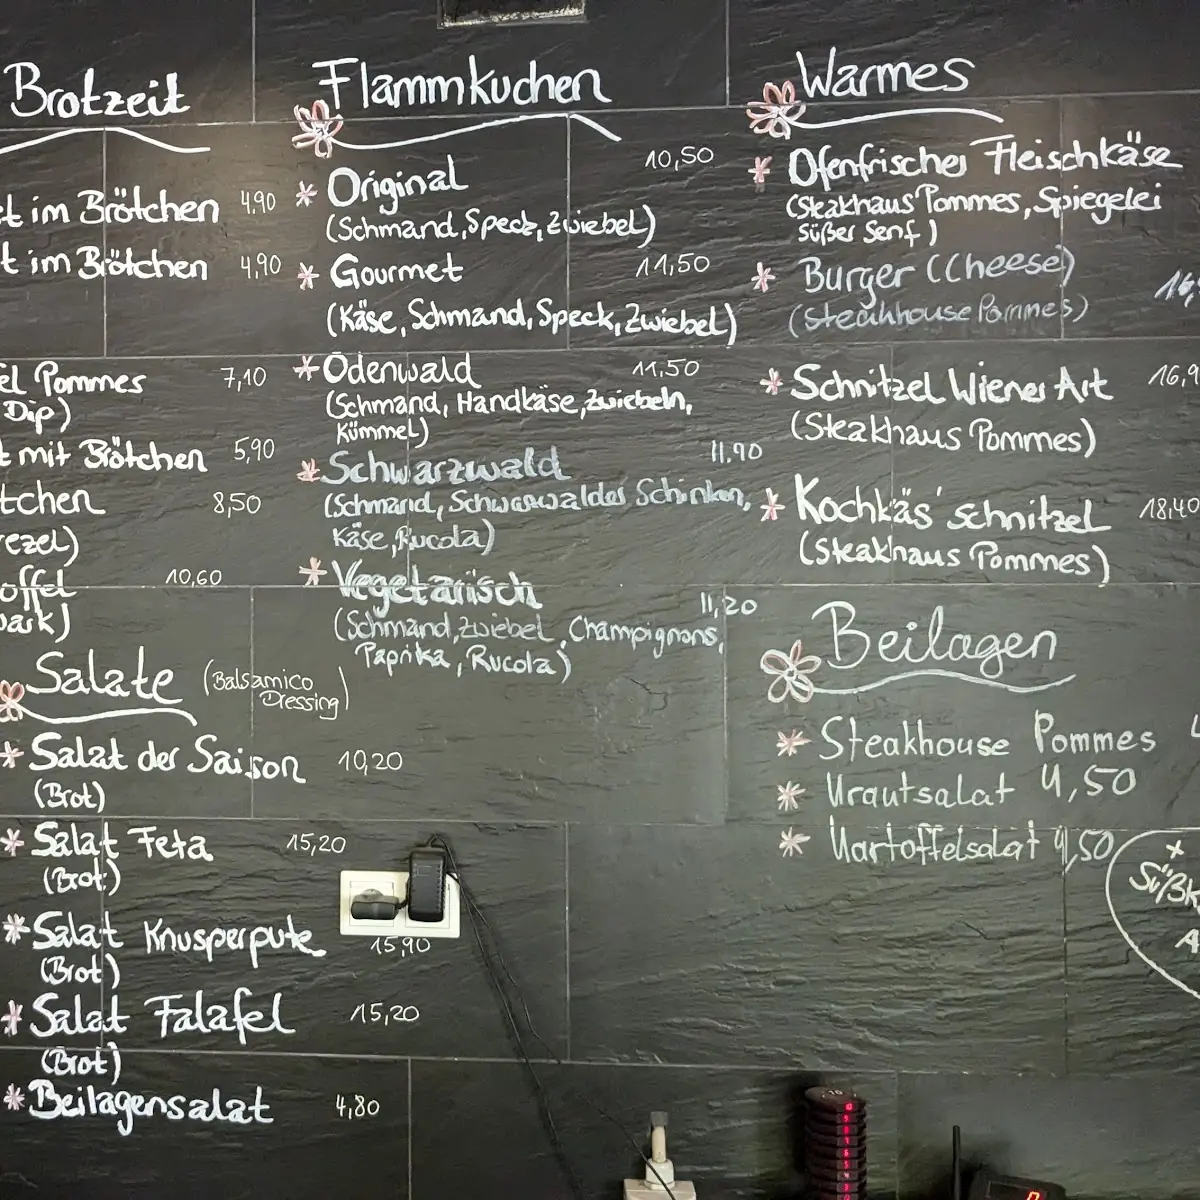 Brotzeit
im Brötchen 4,90
im Brötchen 4,90
Pommes 7,10
Dip)
mit Brötchen 5,90
8,50
10,60
Salate (Balsamico
Dressing)
* Salat der Saison 10,20
(Brot)
* Salat Feta 15,20
(Brot)
* Salat Knusperpute 15,90
(Brot)
* Salat Falafel 15,20
(Brot)
* Beilagensalat 4,80
Flammkuchen
* Original 10,50
(Schmand, Speck, Zwiebel)
* Gourmet 11,50
(Käse, Schmand, Speck, Zwiebel)
* Odenwald 11,50
(Schmand, Handkäse, Zwiebeln,
Kümmel)
* Schwarzwald 11,90
(Schmand, Schwarzwälder Schinken,
Käse, Rucola)
* Vegetarisch 11,20
(Schmand, Zwiebel, Champignons,
Paprika, Rucola)
Warmes
* Ofenfrischer Fleischkäse
(Steakhaus Pommes, Spiegelei
süßer Senf)
* Burger (Cheese)
(Steakhouse Pommes)
* Schnitzel Wiener Art
(Steakhaus Pommes)
* Kochkäs'schnitzel 18,40
(Steakhaus Pommes)
Beilagen
* Steakhouse Pommes
* Krautsalat 4,50
* Kartoffelsalat 4,50
+